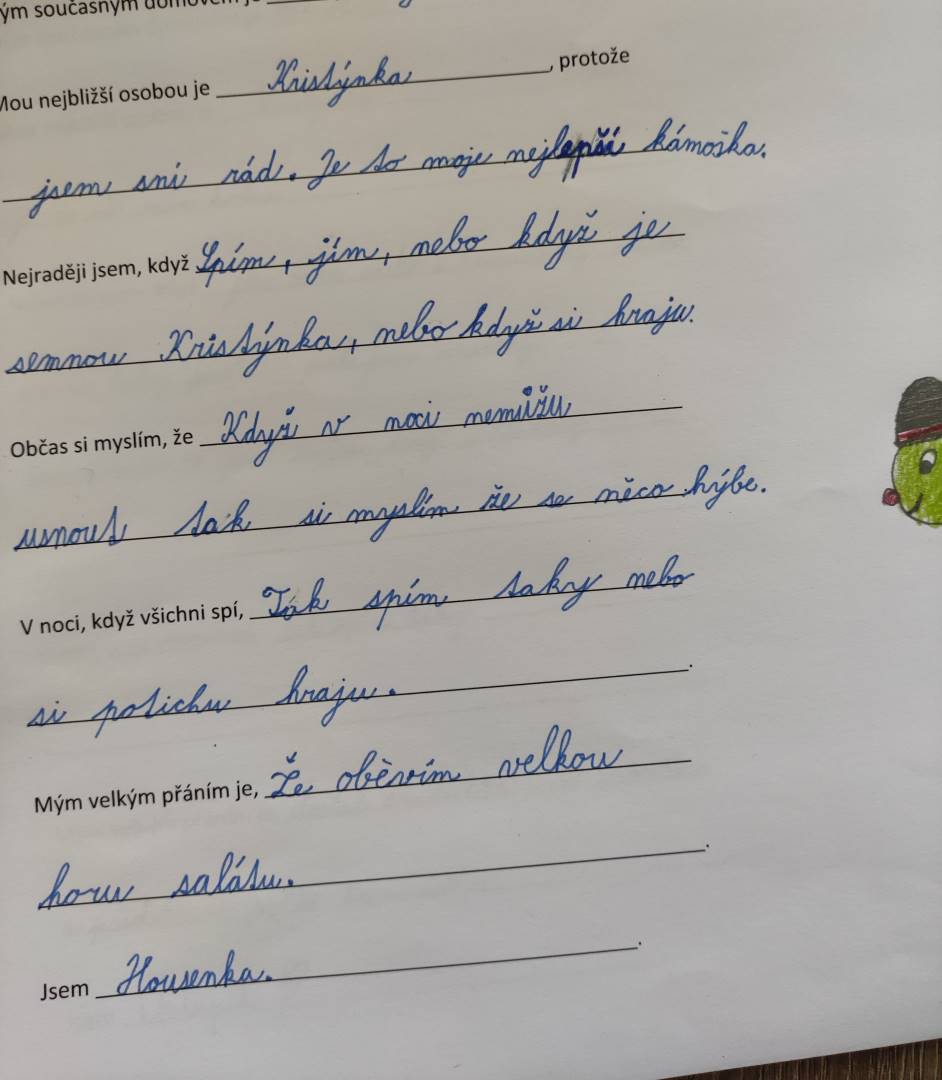 ým současným domovem je
Mou nejbližší osobou je Kristýnka, protože
jsem sní rád. Je to moje nejlepší kámoška.
Nejraději jsem, když Spím, jím, nebo když je
semnou Kristýnka, nebo když si hraju.
Občas si myslím, že Když v noci nemůžu
usnout tak si myslím že se něco hýbe.
V noci, když všichni spí, Tak spím taky nebo
si potichu hraju.
Mým velkým přáním je, Že oběvím velkou
horu salátu.
Jsem Housenka.